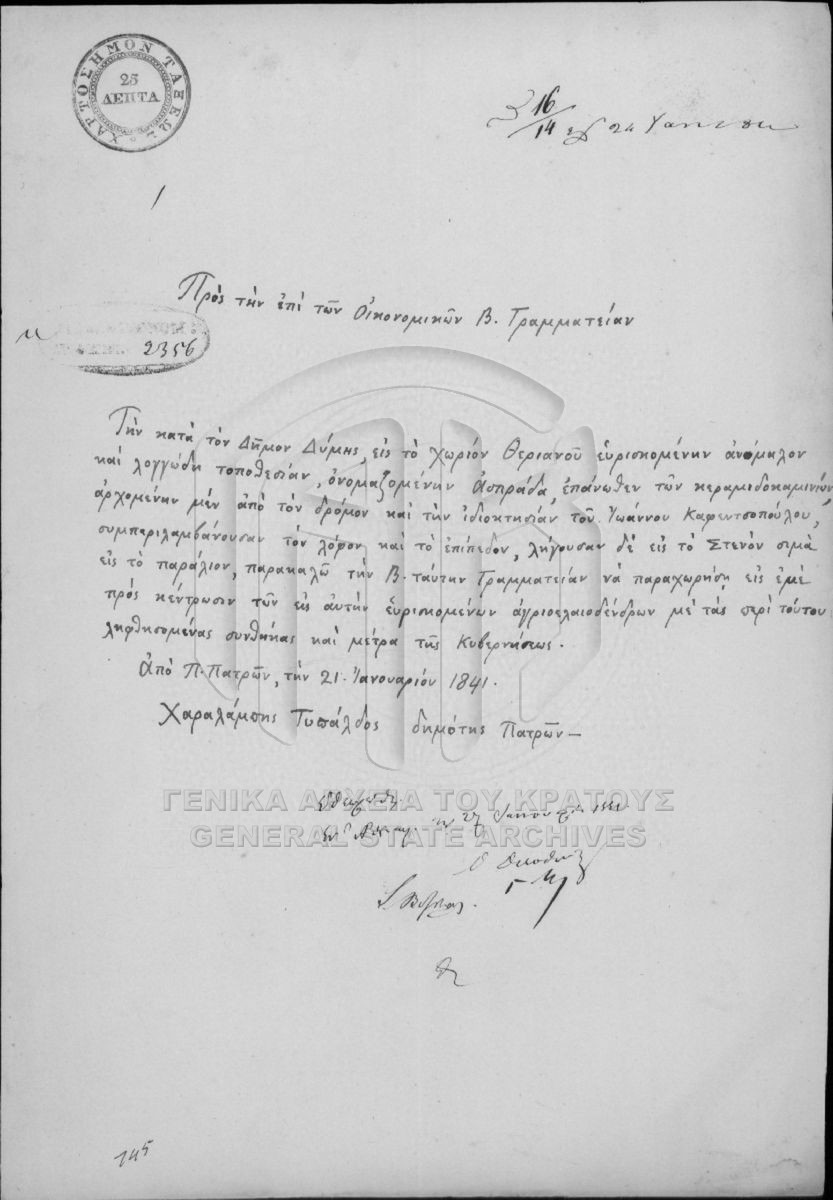 ΧΑΡΤΟΣΗΜΟΝ ΤΑΞΕΩΣ
25
ΛΕΠΤΑ
16
14
1
Πρὸς τὴν ἐπὶ τῶν Οἰκονομικῶν Β. Γραμματείαν
2356
Τὴν κατὰ τὸν Δῆμον Δύμης, εἰς τὸ χωρίον Θεριανοῦ εὑρισκομένην ἀνώμαλον
καὶ λογγώδη τοποθεσίαν, ὀνομαζομένην Ἀσπράδα, ἐπάνωθεν τῶν κεραμιδοκαμινίων,
ἀρχομένην μὲν ἀπὸ τὸν δρόμον καὶ τὴν ἰδιοκτησίαν τοῦ Ἰωάννου Καφεντσοπούλου,
συμπεριλαμβάνουσαν τὸν λόφον καὶ τὸ ἐπίπεδον, λήγουσαν δὲ εἰς τὸ Στενὸν σιμὰ
εἰς τὸ παράλιον, παρακαλῶ τὴν Β. ταύτην Γραμματείαν νὰ παραχωρήσῃ εἰς ἐμὲ
πρὸς κέντρωσιν τῶν εἰς αὐτὴν εὑρισκομένων ἀγριοελαιοδένδρων μὲ τὰς περὶ τούτου
ληφθησομένας συνθήκας καὶ μέτρα τῆς Κυβερνήσεως.
Ἀπὸ Π. Πατρῶν, τὴν 21. Ἰανουαρίου 1841.
Χαραλάμπης Τυπάλδος δημότης Πατρῶν—
ΓΕΝΙΚΑ ΑΡΧΕΙΑ ΤΟΥ ΚΡΑΤΟΥΣ
GENERAL STATE ARCHIVES
Ἐθεωρήθη
27
145